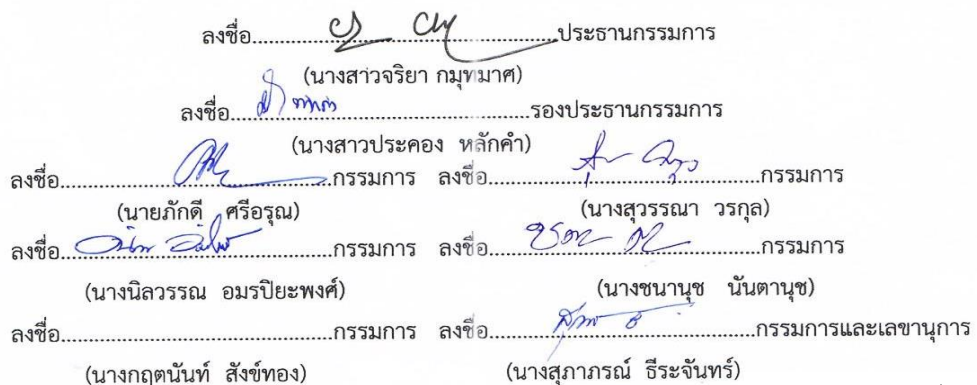 ลงชื่อ........................................................ประธานกรรมการ
(นางสาวจริยา กมุทมาศ)
ลงชื่อ........................................................รองประธานกรรมการ
(นางสาวประคอง หลักคำ)
ลงชื่อ..................................................กรรมการ ลงชื่อ..................................................กรรมการ
(นายภักดี ศรีอรุณ) (นางสุวรรณา วรกุล)
ลงชื่อ..................................................กรรมการ ลงชื่อ..................................................กรรมการ
(นางนิลวรรณ อมรปิยะพงศ์) (นางชนานุช นันตานุช)
ลงชื่อ..................................................กรรมการ ลงชื่อ..................................................กรรมการและเลขานุการ
(นางกฤตนันท์ สังข์ทอง) (นางสุภาภรณ์ ธีระจันทร์)